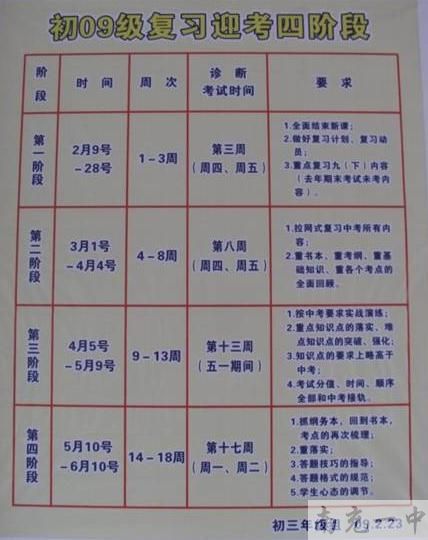 初09级复习迎考四阶段
阶段
时间
周次
诊断
考试时间
要求
第一阶段
2月9号
-28号
1-3周
第三周
(周四、周五)
1.全面结束新课;
2.做好复习计划、复习动
员;
3.重点复习九(下)内容
(去年期末考试未考内
容)。
第二阶段
3月1号
-4月4号
4-8周
第八周
(周四、周五)
1.拉网式复习中考所有内
容;
2.重书本、重考纲、重基
础知识、重各个考点的
全面回顾。
第三阶段
4月5号
-5月9号
9-13周
第十三周
(五一期间)
1.按中考要求实战演练;
2.重点知识点的落实、难
点知识点的突破、强化;
3.知识点的要求上略高于
中考;
4.考试分值、时间、顺序
全部和中考接轨。
第四阶段
5月10号
-6月10号
14-18周
第十七周
(周一、周二)
1.抓纲务本,回到书本,
考点的再次梳理;
2.重落实;
3.答题技巧的指导;
4.答题格式的规范;
5.学生心态的调节。
初三年级组 09.2.23
南充一中